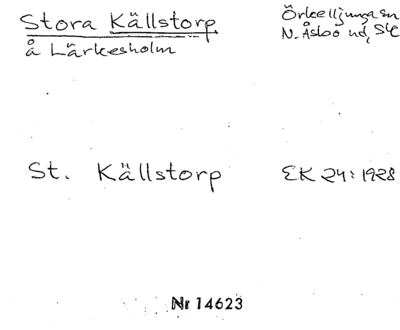 Stora Källstorp
å Lärkesholm
Örkelljunga sn
N. Åsbo hd, Sk
St. Källstorp
EK 24: 1928
Nr 14623